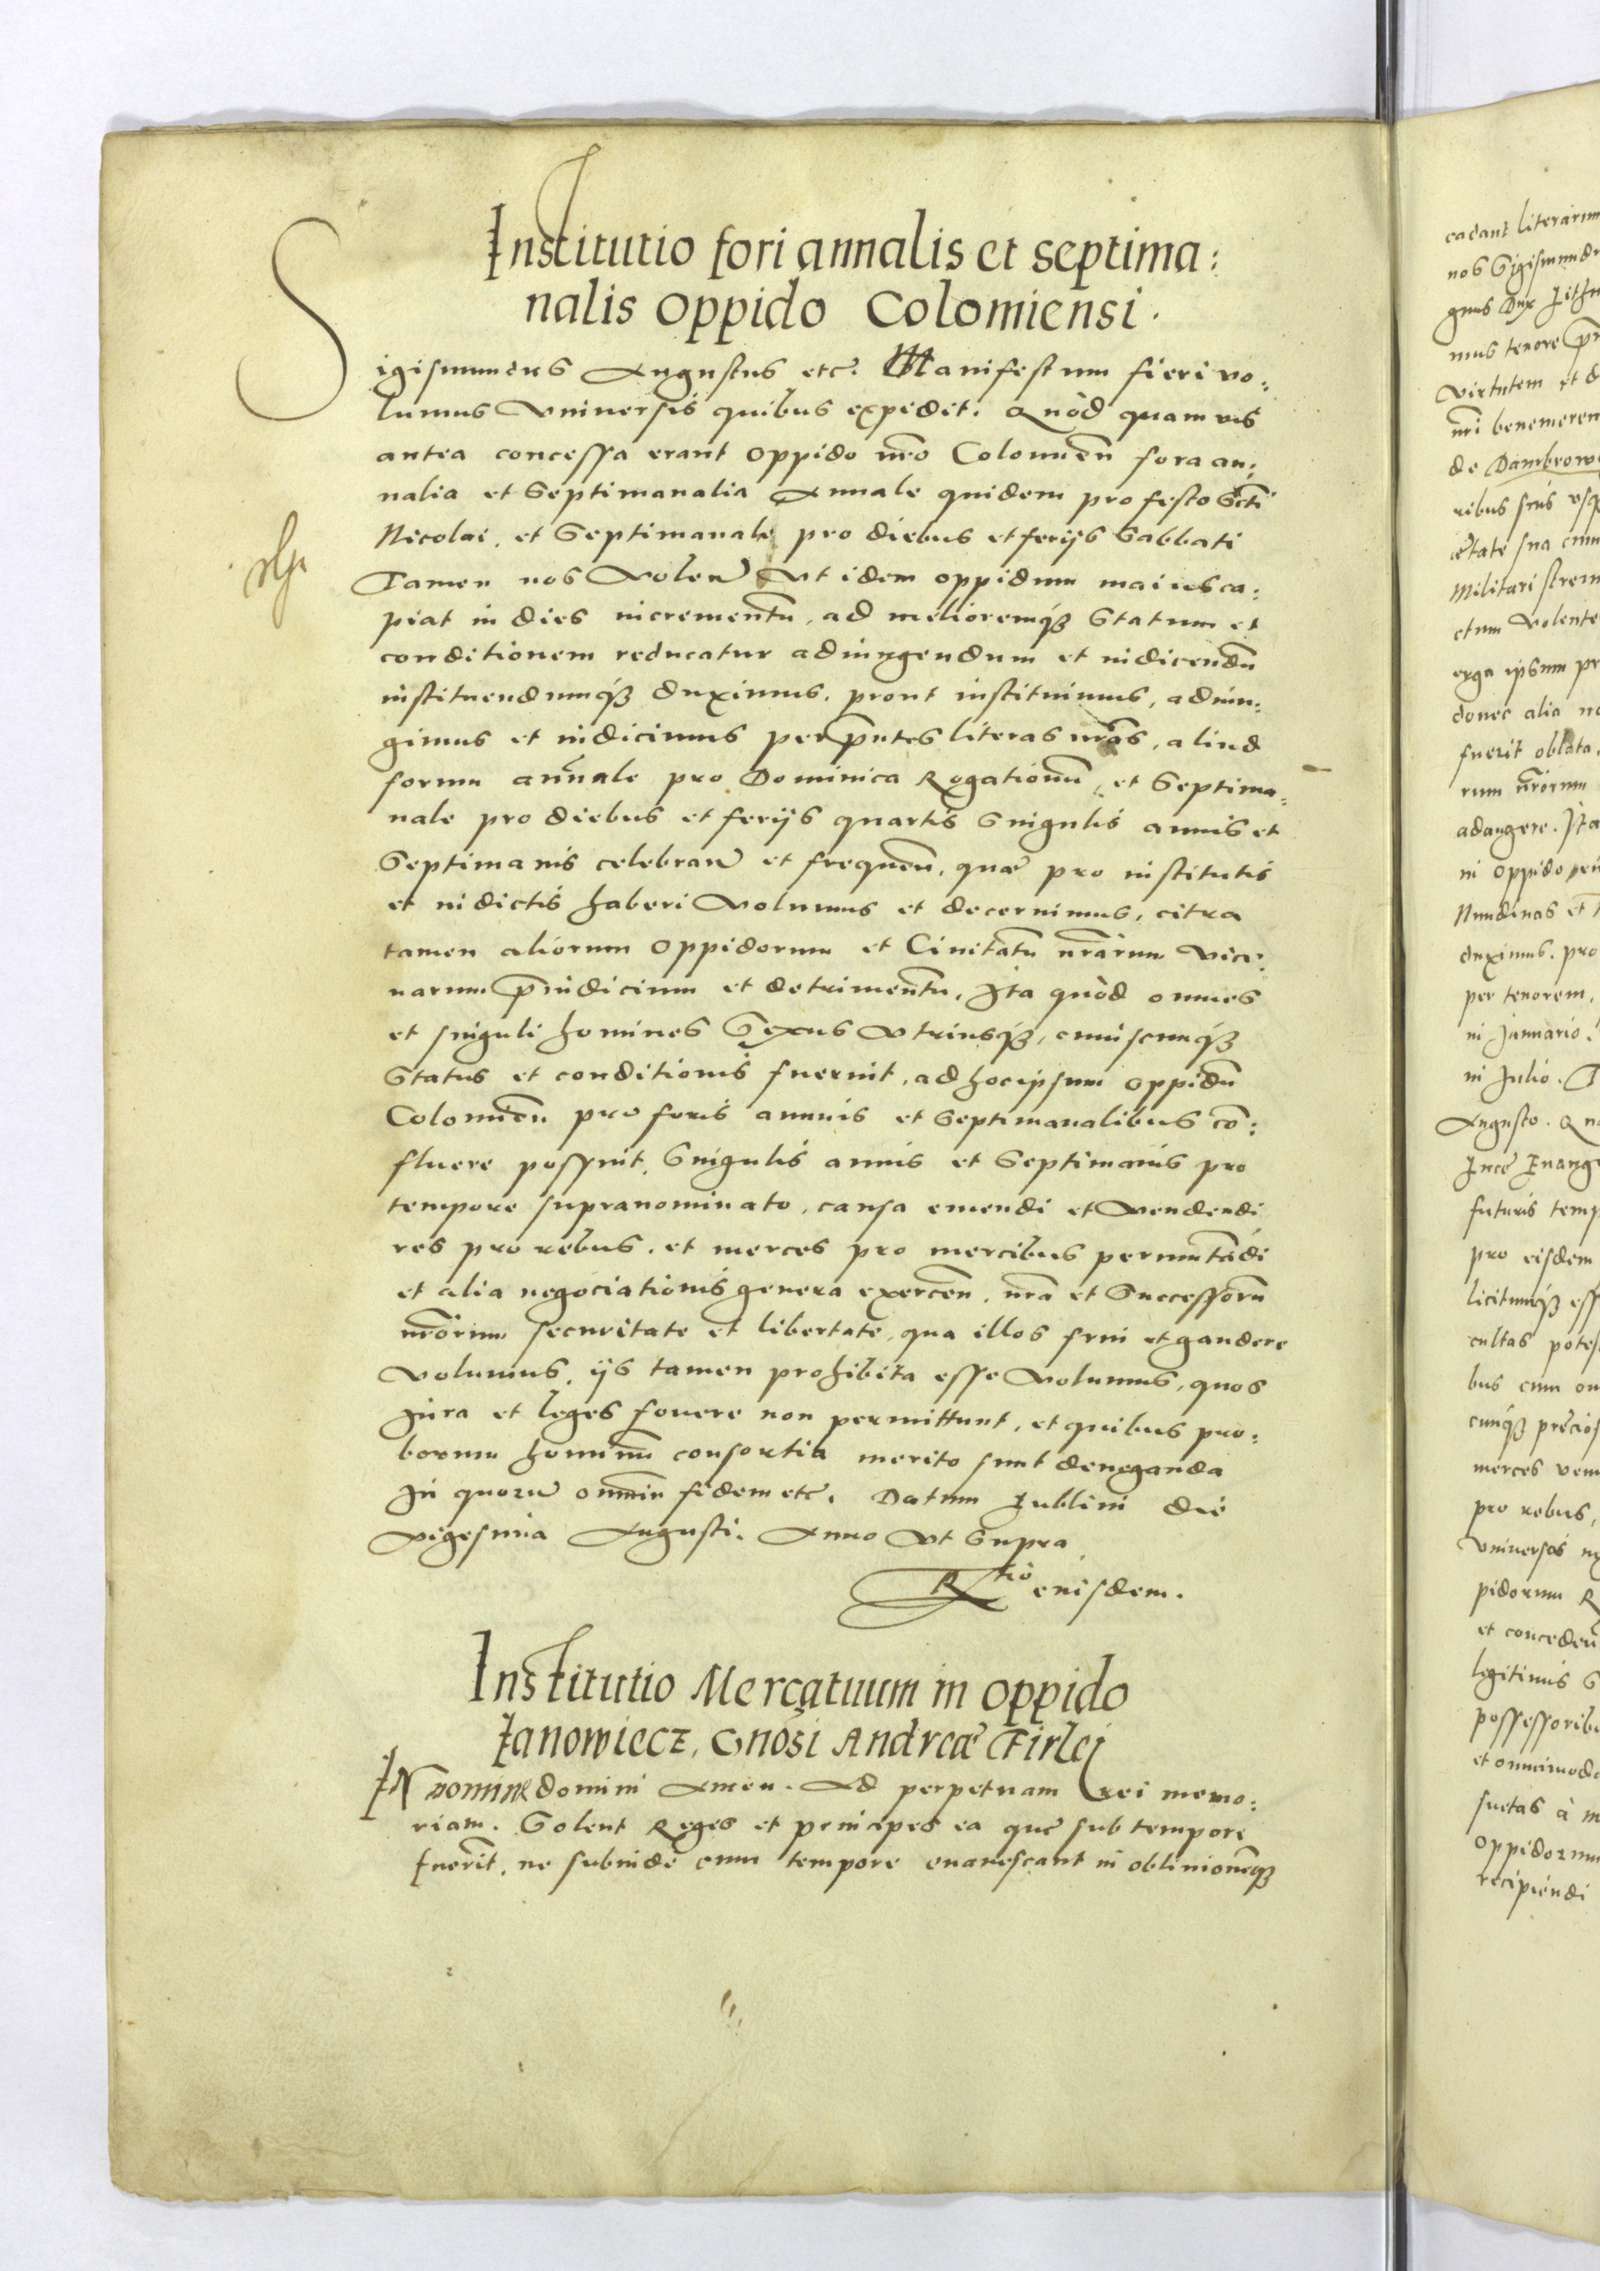 Institutio fori annalis et septima:
nalis oppido Colomiensi.
Sigismundus Augustus etc. Manifestum fieri vo:
lumus Vniversis quibus expedit. Quòd quamvis
antea concessa erant oppido nro Colomień fora an:
nalia et Septimanalia Annale quidem pro festo Scti
Nicolai, et Septimanale pro diebus et ferijs Sabbati
Tamen nos Volen Vt idem oppidum maius ca:
piat in dies incrementũ, ad melioremq3 Statum et
conditionem reducatur adiungendum et indicendũ
instituendumq3 duximus. prout instituimus, adiun:
gimus et indicimus per pñtes literas nras, aliud
forum annale pro Dominica Rogationũ, et Septima:
nale pro diebus et ferijs quartis Singulis annis et
Septimanis celebran et frequen, quæ pro institutis
et indictis haberi Volumus et decernimus, citra
tamen aliorum oppidorum et Civitatũ nrarum Vici:
narum p̃iudicium et detrimentũ, Ita quòd omnes
et singuli homines Sexus Vtriusq3, cuiuscunq3
Status et conditionis fuerint, ad hoc ipsum oppidũ
Colomień pro foris annuis et Septimanalibus cõ:
fluere possint, Singulis annis et Septimanis pro
tempore supranominato, causa emendi et Vendendi
res pro rebus, et merces pro mercibus permutãdi
et alia negociationis genera exercen, nra et Successorũ
nrorum securitate et libertate, qua illos frui et gaudere
Volumus, ijs tamen prohibita esse Volumus, quos
Jura et leges fovere non permittunt, et quibus pro:
borum hominũ consortia merito sunt deneganda
In quorũ omniũ fidem etc. Datum Lublini die
Vigesima Augusti. Anno Vt Supra
Rtio eiusdem.
Institutio Mercatuum in oppido
Janowiecz, Gnosi Andreæ Firlej
IN nomine domini Amen. Ad perpetuam rei memo:
riam. Solent Reges et principes ea quæ sub tempore
fuerit, ne subinde cum tempore evanescant in oblivionẽq3
cadant literarum
nos Sigismund
gnus Dux Lith
mus tenore p̃n
Virtutem et d
nri benemeren
de Dambrow
ribus suis vsq
ætate sua cum
Militari stren
ctum Volente
erga ipsum pr
donec alia no
fuerit oblata.
rum nrorum
adaugere. Ita
in oppido
Nundinas et
duximus. pro
per tenorem,
in Januario.
in Julio.
Augusto.
Lucæ Evang
futuris temp
pro eisdem
licitumq3 ess
cultas potes
bus cum om
cunq3 precios
merces ven
pro rebus,
Vniversis
pidorum
et conceden
legitimis S
possessoribu
et omnimodo
suetas à
oppidorum
recipiendi